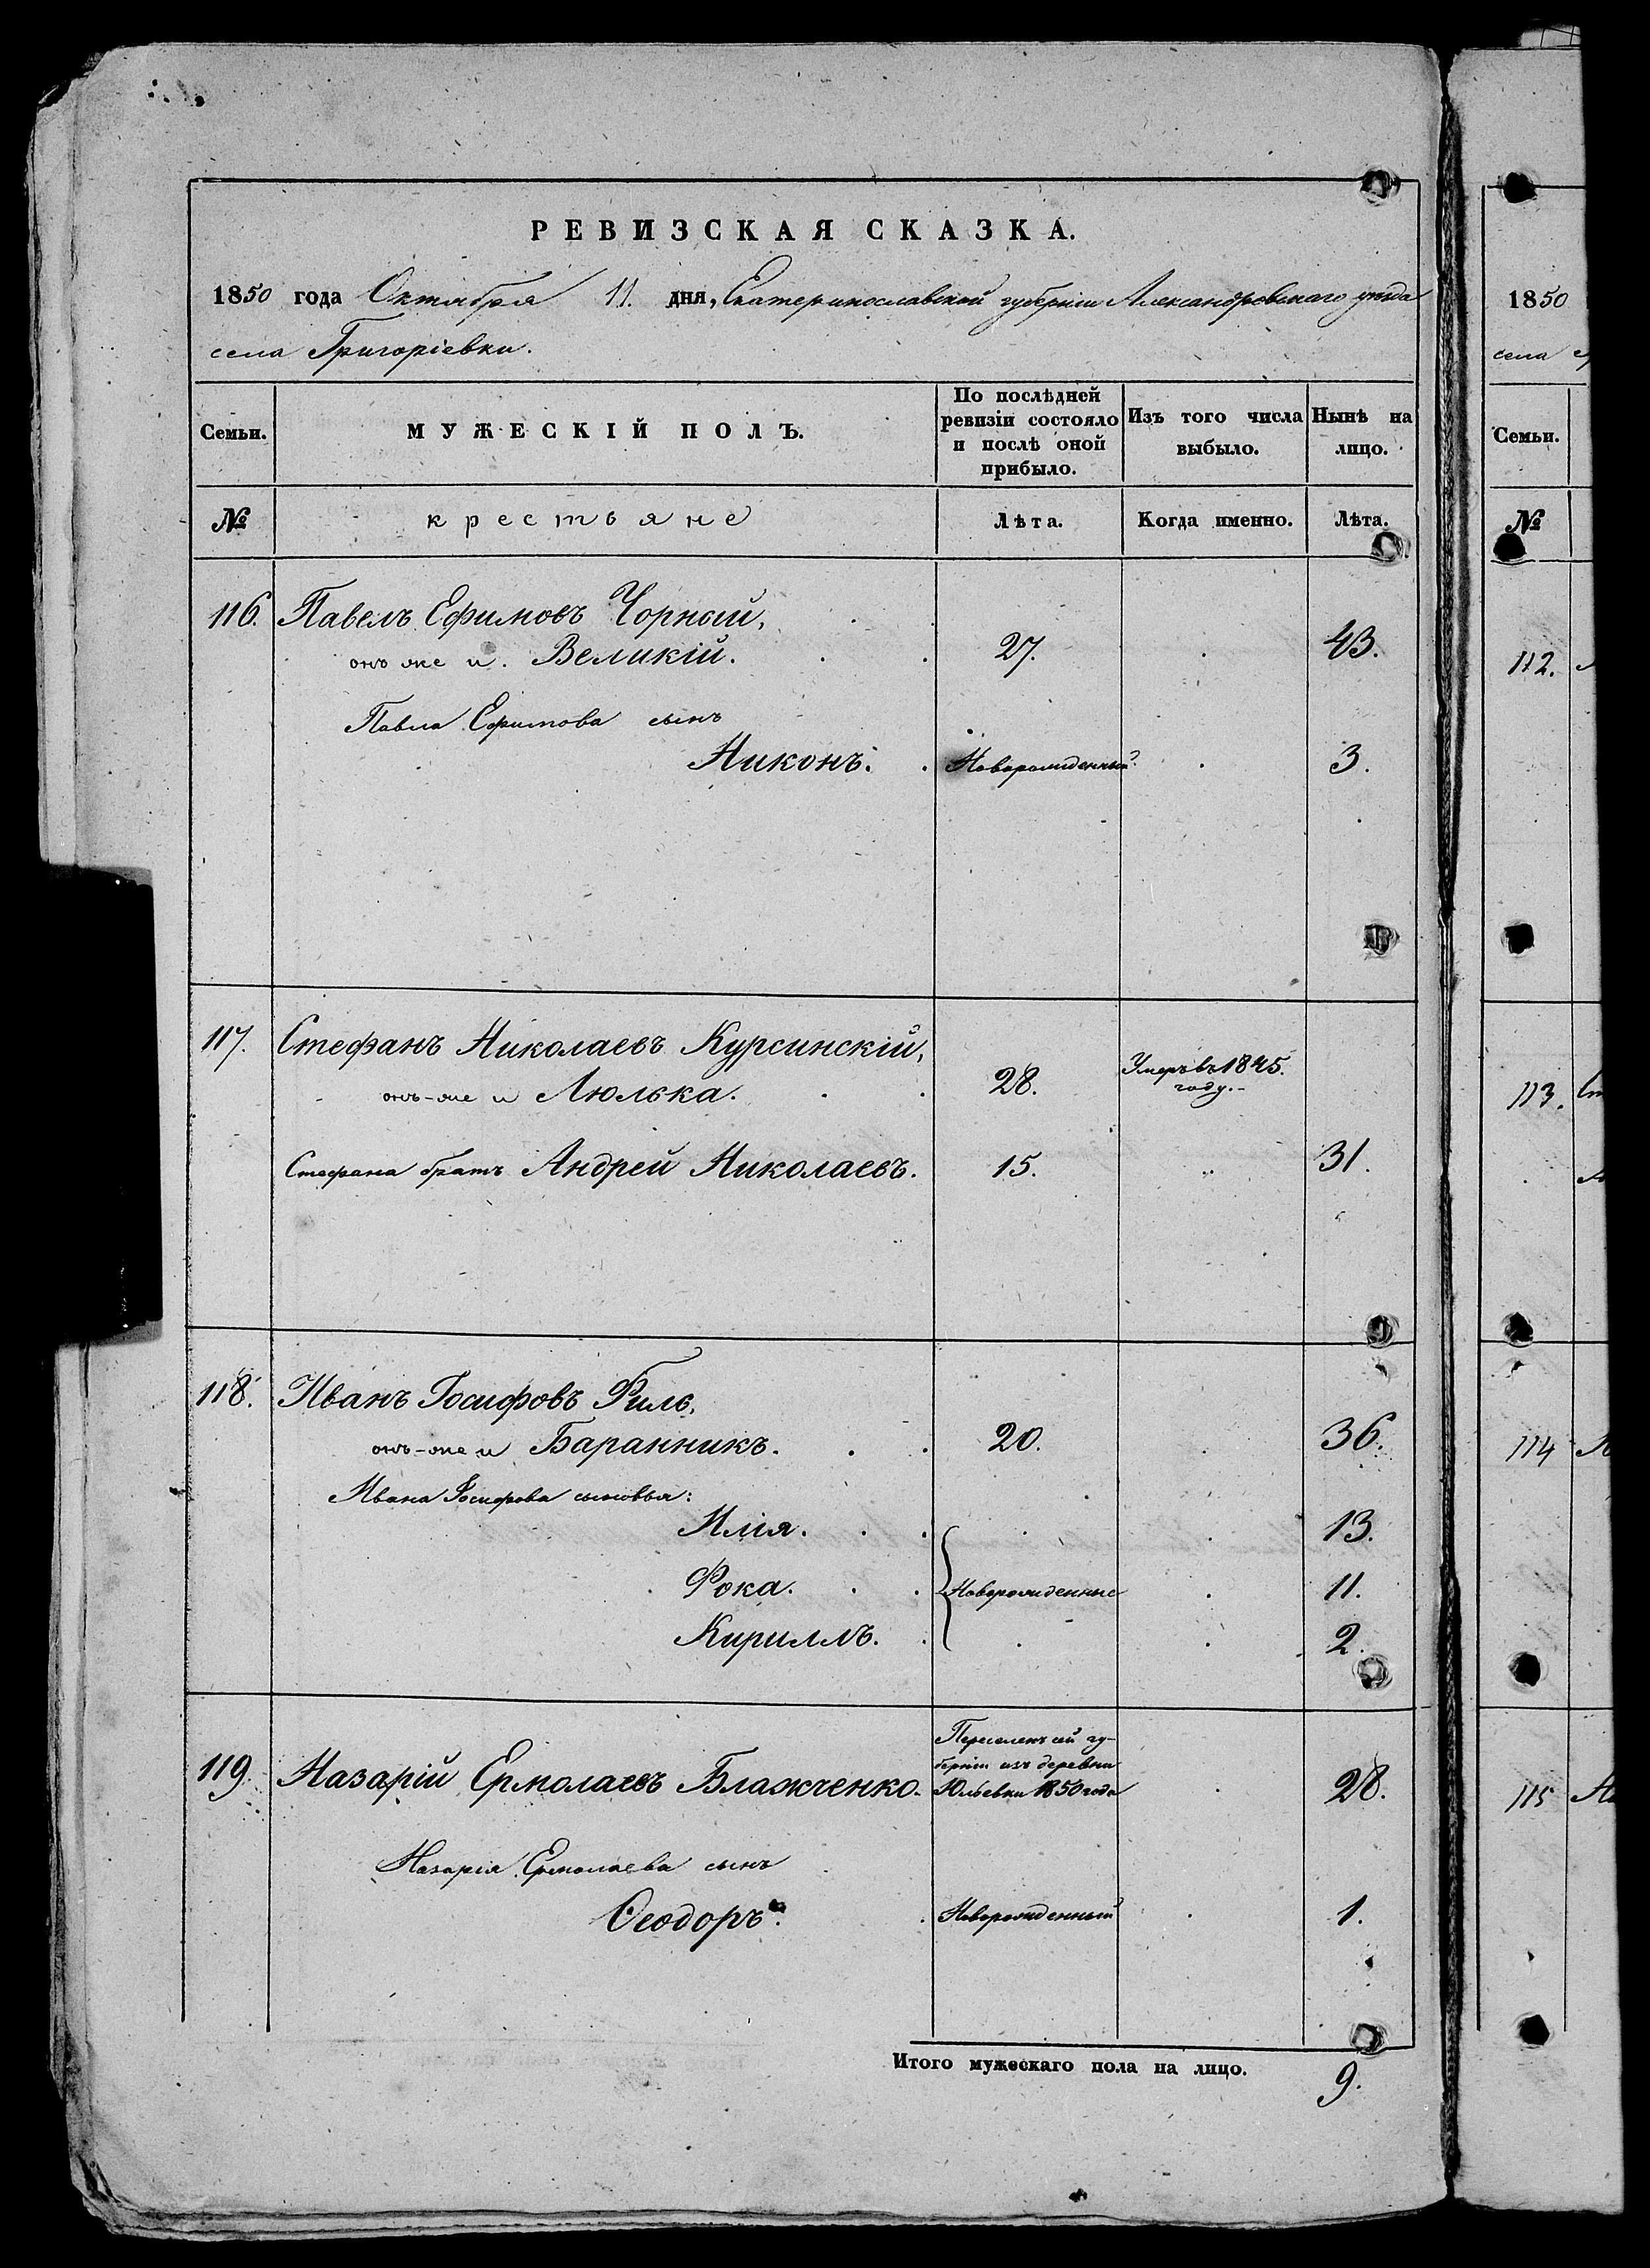 РЕВИЗСКАЯ СКАЗКА.
1850 года Октября 11. дня, Екатеринославской губерніи Александровскаго уѣзда
села Григоріевки.
Семьи.
МУЖЕСКІЙ ПОЛЪ.
По послѣдней
ревизіи состояло
и послѣ оной
прибыло.
Изъ того числа
выбыло.
Нынѣ на
лицо.
№
крестьяне
Лѣта.
Когда именно.
Лѣта.
116. Павелъ Ефимовъ Чорный,
онъ же и Великій. 27. 43.
Павла Ефимова сынъ
Никонъ. Новорожденный. 3.
117. Стефанъ Николаевъ Курсинскій,
онъ-же и Люлька. 28. Умеръ въ 1845.
году.-
Стефана братъ Андрей Николаевъ. 15. 31.
118. Иванъ Іосифовъ Филь,
онъ-же и Баранникъ. 20. 36.
Ивана Іосифова сыновья:
Илія. 13.
Фока. Новорожденные 11.
Кириллъ. 2.
Переселенъ сей гу-
берніи изъ деревни
119. Назарій Ермолаевъ Блажченко. Юльевки 1850 года 28.
Назарія Ермолаева сынъ
Ѳеодоръ. Новорожденный 1.
Итого мужескаго пола на лицо. 9.
1850
села
Семьи.
№
112.
113.
114
115